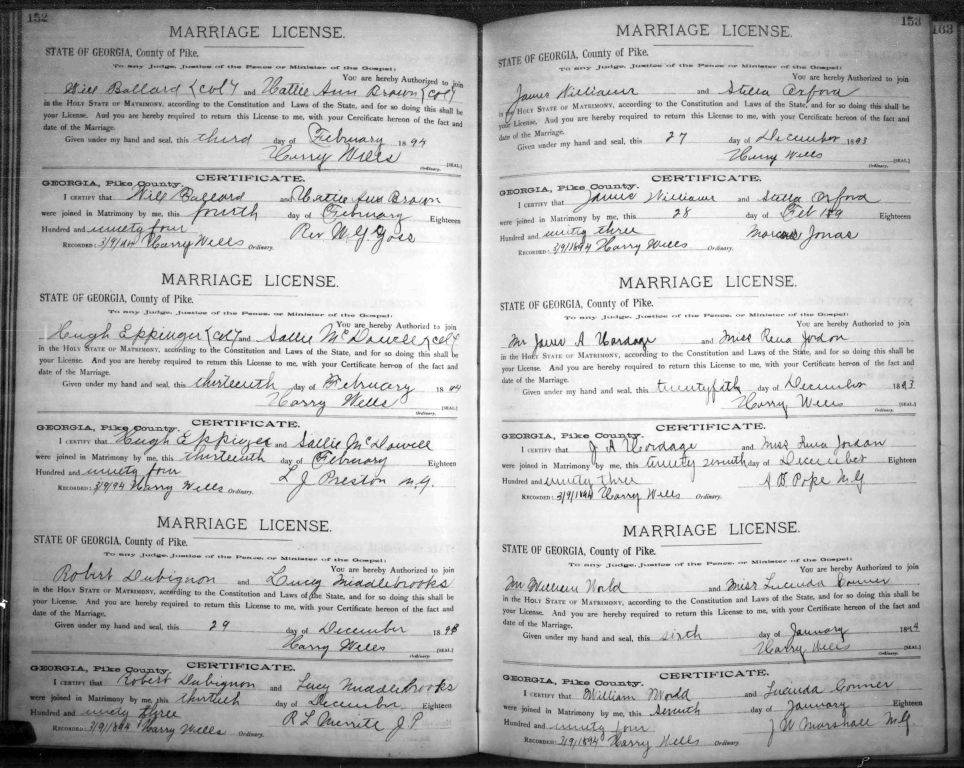 152
MARRIAGE LICENSE.
STATE OF GEORGIA, County of Pike.
To any Judge, Justice of the Peace or Minister of the Gospel:
You are hereby Authorized to join
Will Ballard (Col) and Hattie Ann Brown (Col)
in the HOLY STATE OF MATRIMONY, according to the Constitution and Laws of the State, and for so doing this shall be
your License. And you are hereby required to return this License to me, with your Certificate hereon of the fact and
date of the Marriage.
Given under my hand and seal, this third day of February 1894
Harry Wells [SEAL]
Ordinary.
CERTIFICATE.
GEORGIA, Pike County.
I CERTIFY that Will Ballard and Hattie Ann Brown
were joined in Matrimony by me, this fourth day of February Eighteen
Hundred and ninety four Rev W. G. Goss
RECORDED: 3/9/94 Harry Wells Ordinary.
MARRIAGE LICENSE.
STATE OF GEORGIA, County of Pike.
To any Judge, Justice of the Peace, or Minister of the Gospel:
You are hereby Authorized to join
Hugh Eppinger (Col) and Sallie McDowell (Col)
in the HOLY STATE OF MATRIMONY, according to the Constitution and Laws of the State, and for so doing this shall be
your License. And you are hereby required to return this License to me, with your Certificate hereon of the fact and
date of the Marriage.
Given under my hand and seal, this thirteenth day of February 1894
Harry Wells [SEAL]
Ordinary.
CERTIFICATE.
GEORGIA, Pike County.
I CERTIFY that Hugh Eppinger and Sallie McDowell
were joined in Matrimony by me, this thirteenth day of February Eighteen
Hundred and ninety four L J Preston M.G.
RECORDED: 3/9/94 Harry Wells Ordinary.
MARRIAGE LICENSE.
STATE OF GEORGIA, County of Pike.
To any Judge, Justice of the Peace, or Minister of the Gospel:
You are hereby Authorized to join
Robert Dubignon and Lucy Middlebrooks
in the HOLY STATE OF MATRIMONY, according to the Constitution and Laws of the State, and for so doing this shall be
your License. And you are hereby required to return this License to me, with your Certificate hereon of the fact and
date of the Marriage.
Given under my hand and seal, this 29 day of December 1893
Harry Wells [SEAL]
Ordinary.
CERTIFICATE.
GEORGIA, Pike County.
I CERTIFY that Robert Dubignon and Lucy Middlebrooks
were joined in Matrimony by me, this thirtieth day of December Eighteen
Hundred and ninety three R L Merritt J.P.
RECORDED: 3/9/1894 Harry Wells Ordinary.
153
163
MARRIAGE LICENSE.
STATE OF GEORGIA, County of Pike.
To any Judge, Justice of the Peace or Minister of the Gospel:
You are hereby Authorized to join
James Williams and Stella Orford
in the HOLY STATE OF MATRIMONY, according to the Constitution and Laws of the State, and for so doing this shall be
your License. And you are hereby required to return this License to me, with your Certificate hereon of the fact and
date of the Marriage.
Given under my hand and seal, this 27 day of December 1893
Harry Wells [SEAL]
Ordinary.
CERTIFICATE.
GEORGIA, Pike County.
I CERTIFY that James Williams and Stella Orford
were joined in Matrimony by me, this 28 day of Eighteen
Hundred and ninety three Jonas
RECORDED: 3/9/1894 Harry Wells Ordinary.
MARRIAGE LICENSE.
STATE OF GEORGIA, County of Pike.
To any Judge, Justice of the Peace, or Minister of the Gospel:
You are hereby Authorized to join
Mr James A Hordage and Miss Rena Jordon
in the HOLY STATE OF MATRIMONY, according to the Constitution and Laws of the State, and for so doing this shall be
your License. And you are hereby required to return this License to me, with your Certificate hereon of the fact and
date of the Marriage.
Given under my hand and seal, this twentyfifth day of December 1893
Harry Wells [SEAL]
Ordinary.
CERTIFICATE.
GEORGIA, Pike County.
I CERTIFY that J A Hordage and Miss Rena Jordan
were joined in Matrimony by me, this twenty seventh day of December Eighteen
Hundred and ninety three A B Pope M.G
RECORDED: 3/9/1894 Harry Wells Ordinary.
MARRIAGE LICENSE.
STATE OF GEORGIA, County of Pike.
To any Judge, Justice of the Peace, or Minister of the Gospel:
You are hereby Authorized to join
Mr William World and Miss Lucinda Conner
in the HOLY STATE OF MATRIMONY, according to the Constitution and Laws of the State, and for so doing this shall be
your License. And you are hereby required to return this License to me, with your Certificate hereon of the fact and
date of the Marriage.
Given under my hand and seal, this sixth day of January 1894
Harry Wells [SEAL]
Ordinary.
CERTIFICATE.
GEORGIA, Pike County.
I CERTIFY that William World and Lucinda Conner
were joined in Matrimony by me, this Seventh day of January Eighteen
Hundred and ninety four J W Marshall M.G.
RECORDED: 3/9/1894 Harry Wells Ordinary.